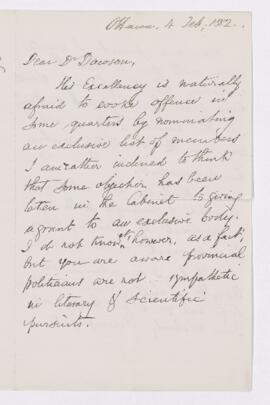 Ottawa. 4 Feb; 1882.
Dear Dr Dawson,
His Excellency is naturally
afraid to evoke offence in
some quarters by nominating
an exclusive list of members
I am rather inclined to think
that some objection has been
taken in the Cabinet to giving
a grant to an exclusive body.
I do not know it, however, as a fact;
but you are aware provincial
politicians are not sympathetic
in literary & scientific
pursuits.